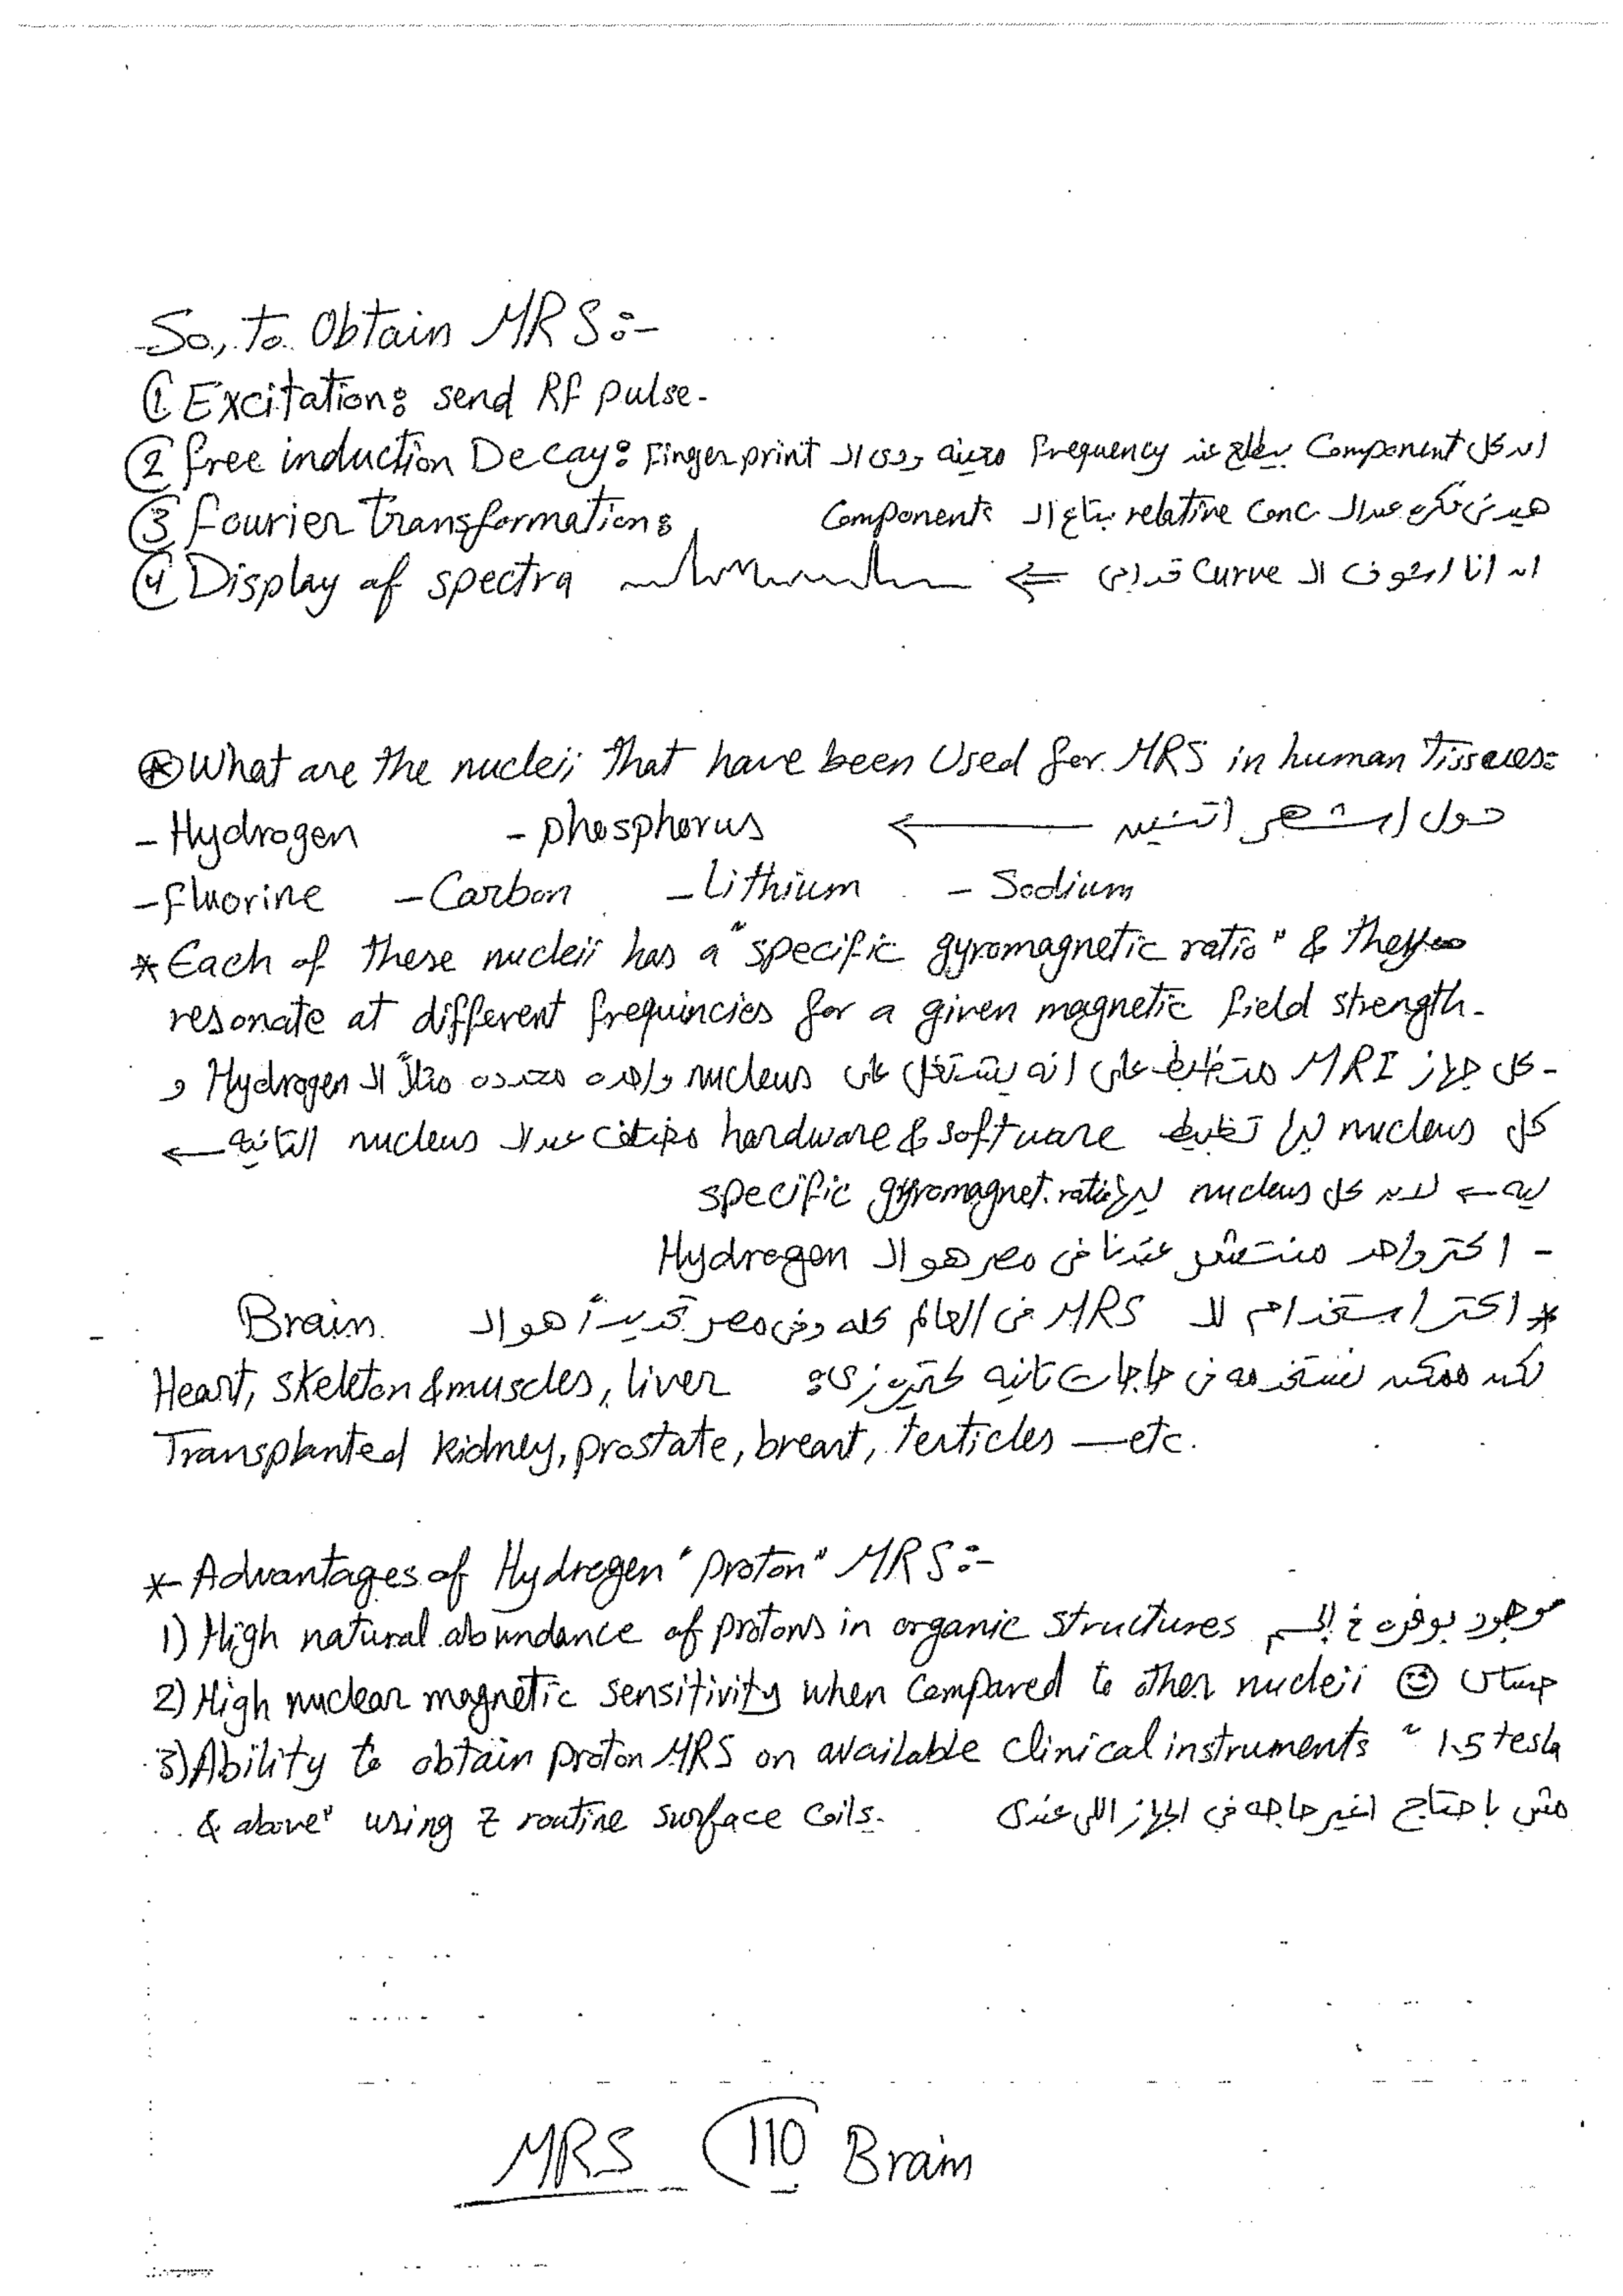 So, to Obtain MRS:-
① Excitation: send RF pulse-
② free induction Decay: ان كل Component بيطلع عند frequency معينه ودى ال Fingerprint
③ Fourier Transformation: هيدينى فكره عن ال relative conc بتاع ال Components
④ Display of spectra ⇐ ان انا اشوف ال Curve قدامى
⊛ What are the nucleii that have been Used for MRS in human Tissues:
- Hydrogen - phosphorus ← دول اشهر اتنين
- fluorine - Carbon - Lithium - Sodium
* Each of these nucleii has a "specific gyromagnetic ratio" & they
resonate at different frequincies for a given magnetic field strength-
- كل جهاز MRI متظبط على انه يشتغل على nucleus واحده محدده مثلاً ال Hydrogen و
كل nucleus ليها تظبيط hardware & software مختلف عن ال nucleus التانيه ←
ليه ← لان كل nucleus ليها specific gyromagnet. ratio
- اكتر واحد منتشر عندنا فى مصر هو ال Hydrogen
* اكتر استخدام لل MRS فى العالم كله وفى مصر تحديداً هو ال Brain
لكن ممكن نستخدمه فى حاجات تانيه كتير زى: Heart, skeleton & muscles, liver
Transplanted kidney, prostate, breast, testicles —etc.
* Advantages of Hydrogen "proton" MRS:-
1) High natural abundance of protons in organic structures موجود بوفره فى الجسم
2) High nuclear magnetic sensitivity when compared to other nucleii ☺ حساس
3) Ability to obtain proton MRS on available clinical instruments " 1.5 tesla
& above" using z routine surface coils. مش باحتاج اغير حاجه فى الجهاز اللى عندى
MRS 110 Brain